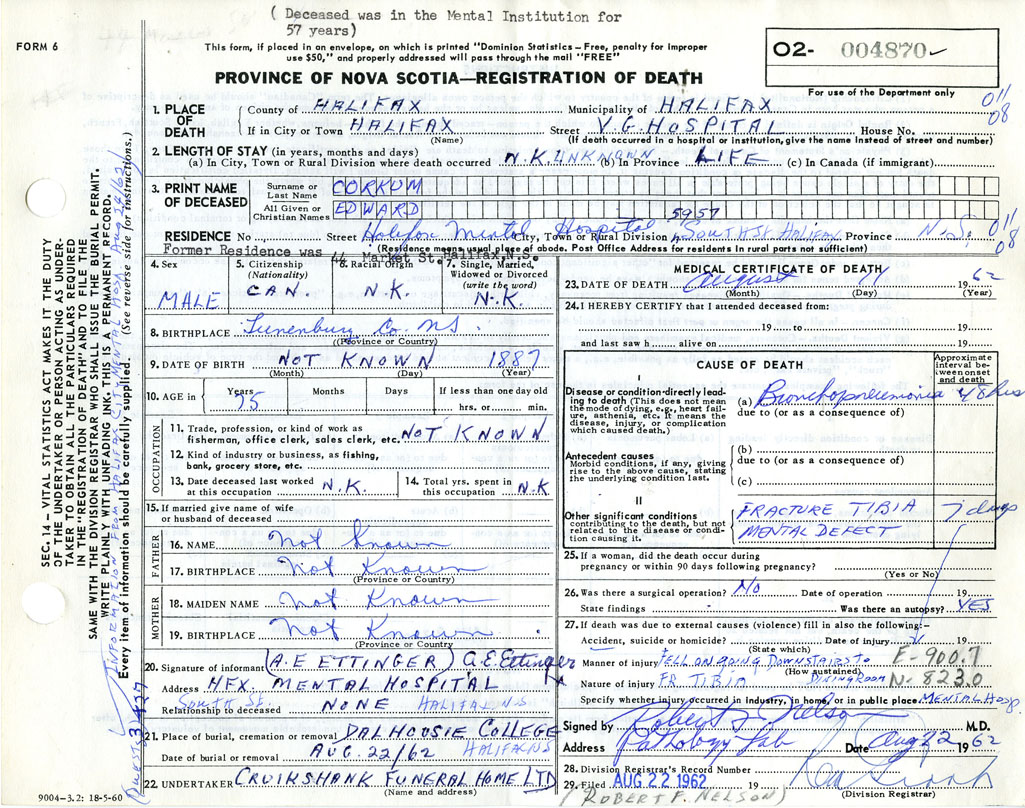 ( Deceased was in the Mental Institution for
57 years)
FORM 6
This form, if placed in an envelope, on which is printed "Dominion Statistics – Free, penalty for improper
use $50," and properly addressed will pass through the mail "FREE"
O2- 004870
For use of the Department only
PROVINCE OF NOVA SCOTIA—REGISTRATION OF DEATH
011
08
1. PLACE OF DEATH
County of HALIFAX Municipality of HALIFAX
If in City or Town HALIFAX Street V.G. HOSPITAL House No.
(Name) (If death occurred in a hospital or institution, give the name instead of street and number)
2. LENGTH OF STAY (in years, months and days)
(a) In City, Town or Rural Division where death occurred N.K. UNKNOWN (b) In Province LIFE (c) In Canada (if immigrant)
3. PRINT NAME OF DECEASED
Surname or Last Name CORKUM
All Given or Christian Names EDWARD
5957
RESIDENCE No. Street Halifax Mental Hospital City, Town or Rural Division South St. Halifax Province N.S.
011
08
(Residence means usual place of abode. Post Office Address for residents in rural parts not sufficient)
Former Residence was 44 Market St. Halifax, N.S.
4. Sex
MALE
5. Citizenship
(Nationality)
CAN.
6. Racial Origin
N.K.
7. Single, Married, Widowed or Divorced
(write the word)
N.K.
8. BIRTHPLACE Lunenburg Co. N.S.
(Province or Country)
9. DATE OF BIRTH NOT KNOWN 1887
(Month) (Day) (Year)
10. AGE in Years 75 Months Days If less than one day old
hrs. or min.
OCCUPATION
11. Trade, profession, or kind of work as
fisherman, office clerk, sales clerk, etc. NOT KNOWN
12. Kind of industry or business, as fishing,
bank, grocery store, etc.
13. Date deceased last worked
at this occupation N.K.
14. Total yrs. spent in
this occupation N.K
15. If married give name of wife
or husband of deceased
FATHER
16. NAME Not Known
17. BIRTHPLACE Not Known
(Province or Country)
MOTHER
18. MAIDEN NAME Not Known
19. BIRTHPLACE Not Known
(Province or Country)
20. Signature of informant (A.E ETTINGER) A.E. Ettinger
Address HFX. MENTAL HOSPITAL
South St. HALIFAX N.S
Relationship to deceased NONE
21. Place of burial, cremation or removal DALHOUSIE COLLEGE
Date of burial or removal AUG. 22/62 HALIFAX NS
22. UNDERTAKER CRUIKSHANK FUNERAL HOME LTD
(Name and address)
9004–3.2: 18-5-60
MEDICAL CERTIFICATE OF DEATH
23. DATE OF DEATH August 11 1962
(Month) (Day) (Year)
24. I HEREBY CERTIFY that I attended deceased from:
19 to 19
and last saw h alive on 19
CAUSE OF DEATH
Approximate interval between onset and death
I
Disease or condition directly leading to death (This does not mean the mode of dying, e.g., heart failure, asthenia, etc. It means the disease, injury, or complication which caused death.)
(a) Bronchopneumonia 48 hrs
due to (or as a consequence of)
Antecedent causes
Morbid conditions, if any, giving rise to the above cause, stating the underlying condition last.
(b)
due to (or as a consequence of)
(c)
II
Other significant conditions
contributing to the death, but not related to the disease or condition causing it.
FRACTURE TIBIA 7 days
MENTAL DEFECT
25. If a woman, did the death occur during
pregnancy or within 90 days following pregnancy?
(Yes or No)
26. Was there a surgical operation? NO Date of operation 19
State findings Was there an autopsy? YES
27. If death was due to external causes (violence) fill in also the following:–
Accident, suicide or homicide? Date of injury 19
(State which)
Manner of injury FELL ON GOING DOWNSTAIRS TO DININGROOM E-900.7
(How sustained)
Nature of injury FR TIBIA N-823.0
Specify whether injury occurred in industry, in home, or in public place MENTAL HOSP.
Signed by Robert F. Nelson M.D.
Address Pathology Lab Date Aug 22 1962
28. Division Registrar's Record Number
29. Filed AUG 22 1962
(Division Registrar)
(ROBERT F. NELSON)
SEC. 14 – VITAL STATISTICS ACT MAKES IT THE DUTY
OF THE UNDERTAKER OR PERSON ACTING AS UNDER-
TAKER TO OBTAIN ALL THE PARTICULARS REQUIRED
IN THE "REGISTRATION OF DEATH" AND TO FILE THE
SAME WITH THE DIVISION REGISTRAR WHO SHALL ISSUE THE BURIAL PERMIT.
WRITE PLAINLY WITH UNFADING INK. THIS IS A PERMANENT RECORD.
Every item of information should be carefully supplied. (See reverse side for instructions.)
INFORMATION FROM HALIFAX CITY MENTAL HOSP.